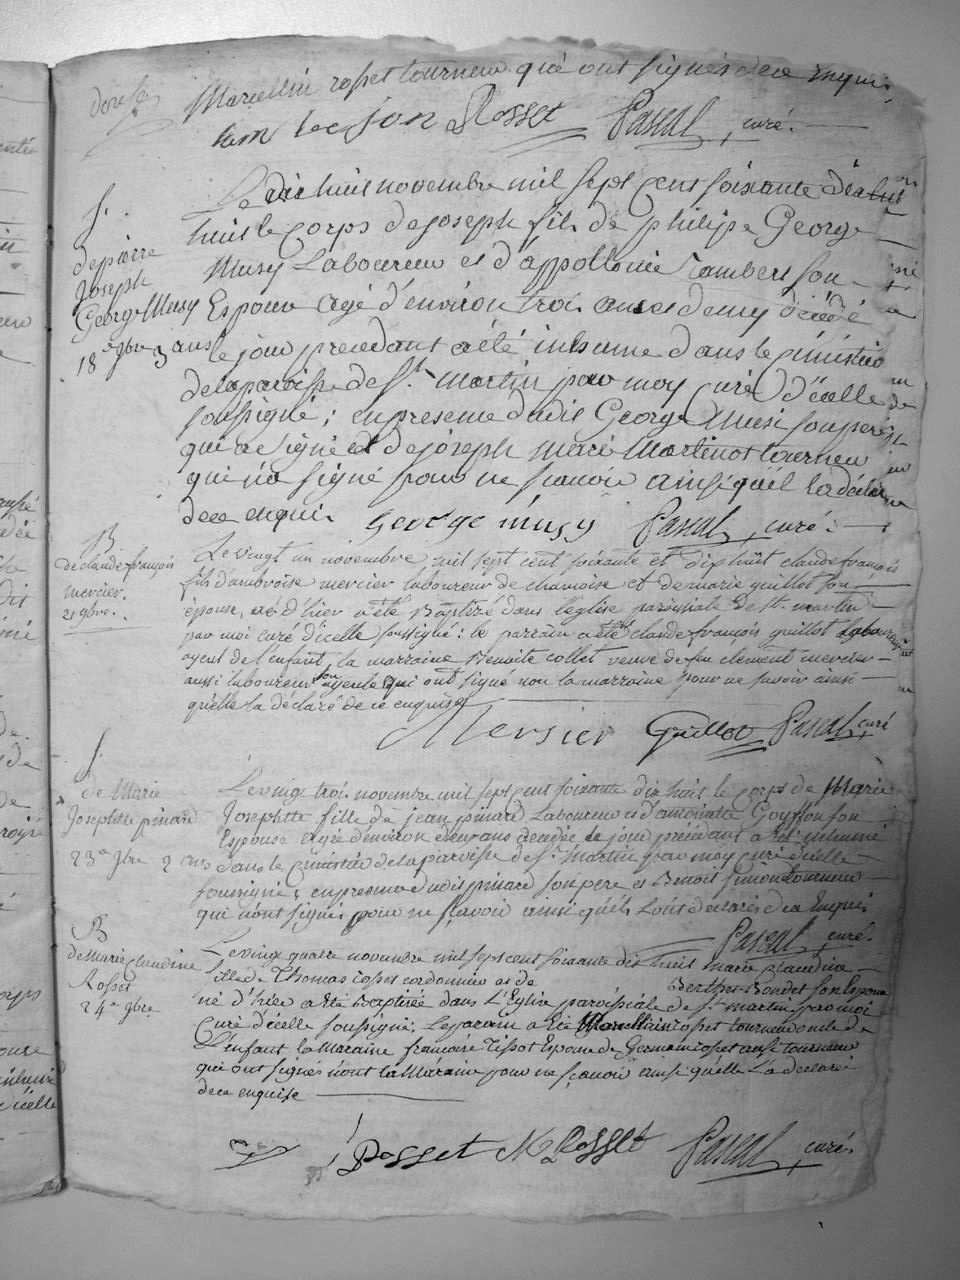 Marcellin rosset tourneur qui ont signés de ce Enquis
Rosset Pascal, curé.
Le dix huit novembre mil sept cent soixante dix
huit le corps de joseph fils de philipe George
Musy Laboureur et d'appollonie rambert son
Epouse agé d'environ trois ans et demy décédé
le jour precedant a été inhumé dans le cimetiere
de la paroisse de St. martin par moy curé d'icelle
soussigné; en presence dudit George Musi son pere
qui a signé et de joseph marie Martinot tourneur
qui n'a signé pour ne scavoir ainsi qu'il l'a déclaré
de ce enquis George musy Pascal, curé.
S.
de pierre
Joseph
George Musy
18e 9bre 3 ans
B
de claude françois
mercier.
21 9bre.
Le vingt un novembre mil sept cent soixante et dix huit claude françois
fils d'ambroise mercier laboureur de chamoise et de marie guillot son
épouse, né d'hier a été Baptizé dans l'eglise paroissiale de St. martin
par moi curé d'icelle soussigné: le parrain a été claude françois guillot laboureur
ayeul de l'enfant, la marraine Benoite collet veuve de feu clement mercier
aussi laboureur son ayeule qui ont signé non la marraine pour ne savoir ainsi
qu'elle l'a déclaré de ce enquise
Mersier Guillot Pascal, curé
S.
de Marie
Josephtte pinard
23e 9bre 2 ans
Le vingt trois novembre mil sept cent soixante dix huit le corps de Marie
Josephtte fille de jean pinard Laboureur et d'antoinette Goyffon son
Epouse agée d'environ deux ans décédée le jour précédant a été inhumé
dans le cimetiere de la paroisse de St. Martin par moy curé d'icelle
soussigné; en presence dudit pinard son pere et Benoit simon tourneur
qui n'ont signés pour ne sçavoir ainsi qu'ils l'ont déclarés de ce Enquis
Pascal, curé.
B
de Marie claudine
Rosset
24e 9bre.
Le vingt quatre novembre mil sept cent soixante dix huit marie claudine
fille de Thomas rosset cordonnier et de Berthet Bondet son Epouse
né d'hier a été Baptisée dans L'Eglise paroissiale de St. martin par moi
curé d'icelle soussigné; Le parain a été Marcellin rosset tourneur oncle de
L'enfant la Maraine françoise Tissot Epouse de Germain rosset aussi tourneur
qui ont signés non la Maraine pour ne sçavoir ainsi qu'elle La déclaré
de ce enquise
Rosset M Rosset Pascal, curé.